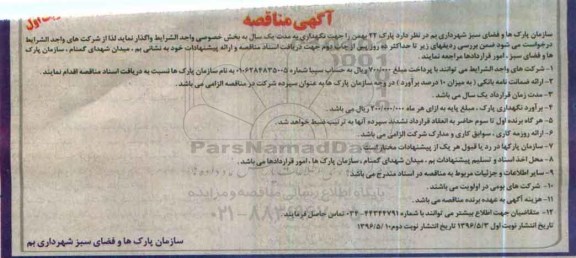 نوبت اول
آگهی مناقصه
سازمان پارک ها و فضای سبز شهرداری بم در نظر دارد پارک ۲۲ بهمن را جهت نگهداری به مدت یک سال به بخش خصوصی واجد الشرایط واگذار نماید لذا از شرکت های واجد الشرایط
درخواست می شود ضمن بررسی ردیفهای زیر تا حداکثر ده روز پس از چاپ دوم جهت دریافت اسناد مناقصه و ارائه پیشنهادات خود به نشانی بم ، میدان شهدای گمنام ، سازمان پارک
ها و فضای سبز ، امور قراردادها مراجعه نمایند .
۱ - شرکت های واجد الشرایط می توانند با پرداخت مبلغ ۷۰۰/۰۰۰ ریال به حساب سیبا شماره ۰۱۰۶۲۸۴۸۳۵۰۰۵ به نام سازمان پارک ها نسبت به دریافت اسناد مناقصه اقدام نمایند .
۲ - ارائه ضمانت نامه بانکی ( به میزان ۱۰ درصد برآورد ) در وجه سازمان پارک ها به عنوان سپرده شرکت در مناقصه الزامی می باشد .
۳ - مدت زمان قرارداد یک سال می باشد .
۴ - برآورد نگهداری پارک ، مبلغ پایه به ازای هر ماه ۲۰۰/۰۰۰/۰۰۰ ریال می باشد .
۵ - هر گاه برنده اول تا سوم حاضر به انعقاد قرارداد نشدند سپرده آنها به ترتیب ضبط خواهد شد .
۶ - ارائه روزمه کاری ، سوابق کاری و مدارک شرکت الزامی می باشد .
۷ - سازمان پارکها در رد یا قبول هر یک از پیشنهادات مختار است .
۸ - محل اخذ اسناد و تسلیم پیشنهادات بم ، میدان شهدای گمنام ، سازمان پارک ها ، امور قراردادها می باشد .
۹ - سایر اطلاعات و جزئیات مربوط به مناقصه در اسناد مندرج می باشد .
۱۰ - شرکت های بومی در اولویت می باشند .
۱۱ - هزینه آگهی به عهده برنده مناقصه می باشد .
۱۲ - متقاضیان جهت اطلاع بیشتر می توانند با شماره ۴۴۳۴۴۷۹۱-۰۳۴ تماس حاصل فرمایند
تاریخ انتشار نوبت اول ۱۳۹۶/۵/۳ تاریخ انتشار نوبت دوم ۱۳۹۶/۵/۱۰
سازمان پارک ها و فضای سبز شهرداری بم
ParsNamadData
پایگاه اطلاع رسانی مناقصه و مزایده